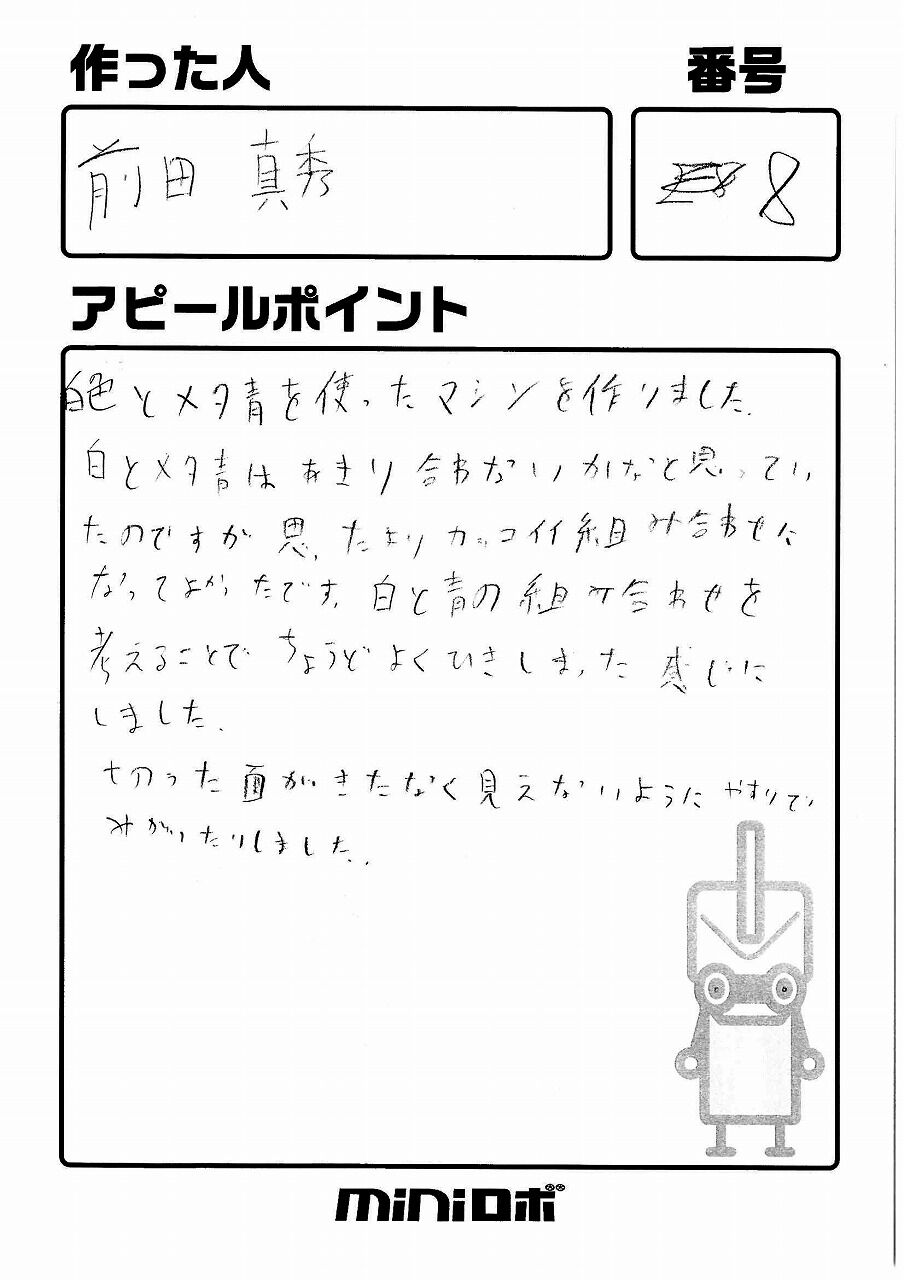 作った人
番号
前田 真秀
8
アピールポイント
白色とメタ青を使ったマシンを作りました.
白とメタ青はあまり合わないかなと思ってい
たのですが思ったよりカッコイイ組み合わせに
なってよかったです。白と青の組み合わせを
考えることでちょうどよくひきしまった感じに
しました.
切った面がきたなく見えないようにやすりで
みがいたりしました.
miniロボ